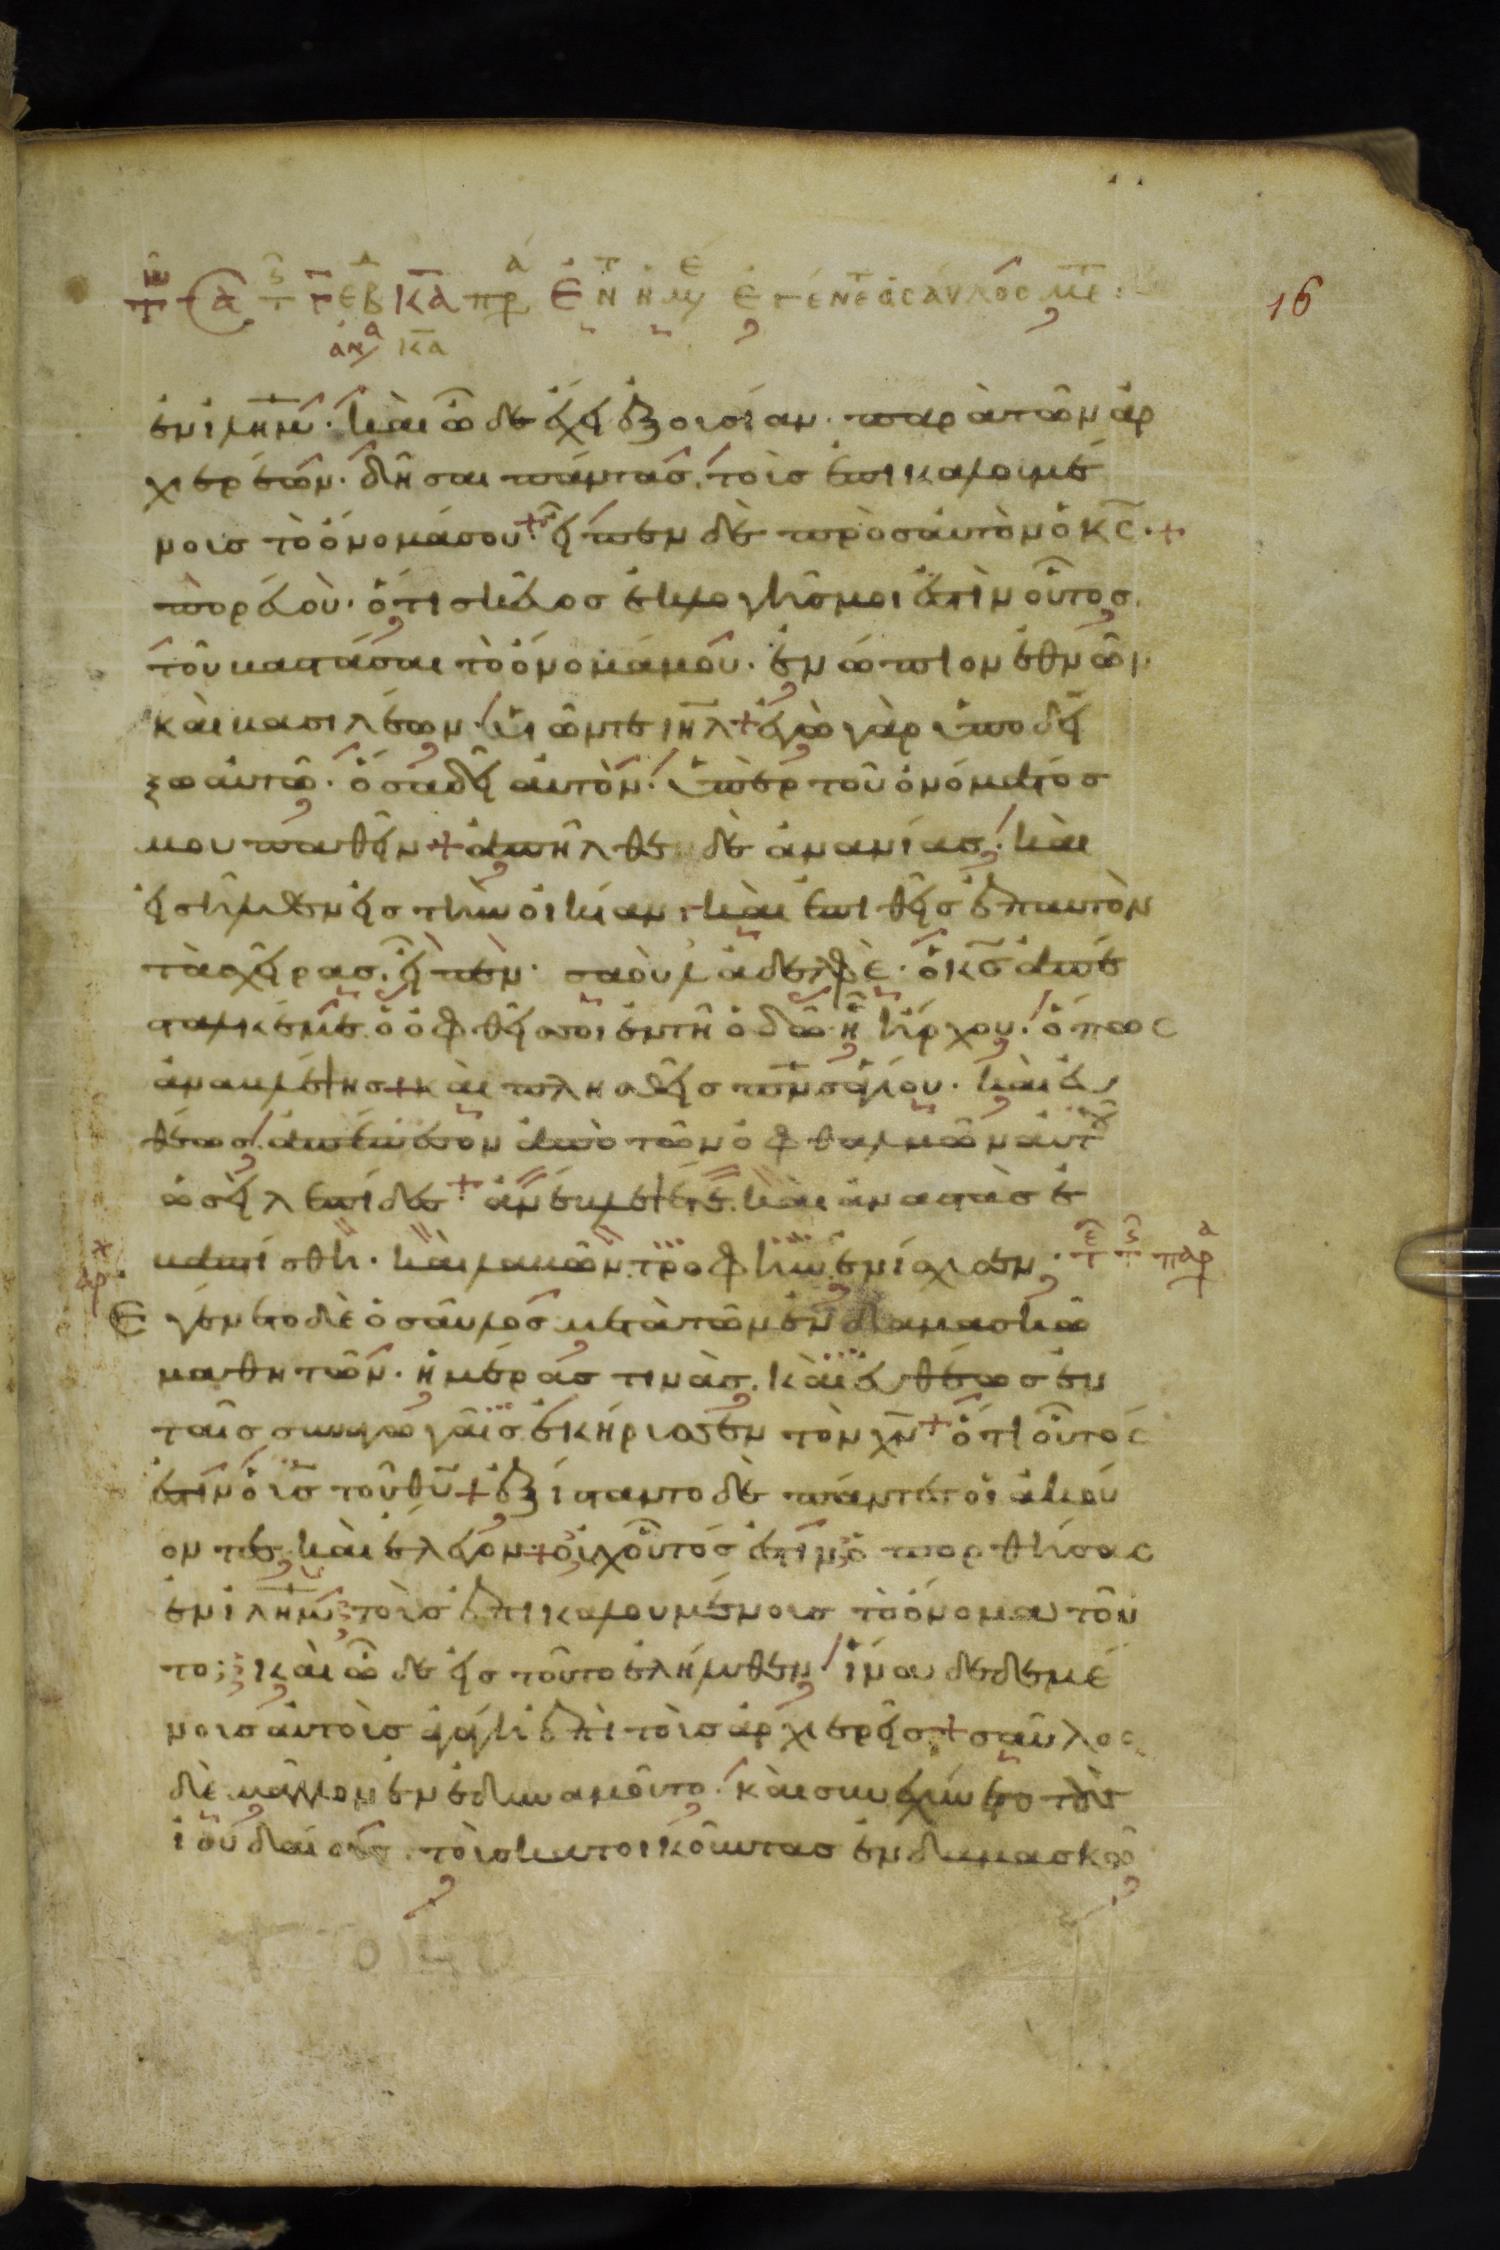 16
ΚΑ
ΕΓΕΝΕ Ο CΑΥΛΟC ΜΕ
ἐν ἱλημ̅· καὶ ὧδε ἔχει ἐξουσίαν· παρὰ τῶν ἀρ
χιερέων· δῆσαι πάντας· τοὺς ἐπικαλουμέ
νους τὸ ὄνομά σου + εἶπεν δὲ πρὸς αὐτὸν ὁ κς̅· +
πορεύου· ὅτι σκεῦος ἐκλογῆς μοι ἐστὶν οὗτος·
τοῦ βαστάσαι τὸ ὄνομά μου· ἐνώπιον ἐθνῶν
καὶ βασιλέων· υἱῶν τε ιηλ̅ + ἐγὼ γὰρ ὑποδεί
ξω αὐτῶ· ὅσα δεῖ αὐτὸν· ὑπὲρ τοῦ ὀνόματός
μου παθεῖν + ἀπῆλθε δὲ ἀνανίας· καὶ
εἰσῆλθεν εἰς τὴν οἰκίαν· καὶ ἐπιθεὶς ἐπ αὐτὸν
τὰς χεῖρας· εἶπεν· σαοὺλ ἀδελφὲ· ὁ κς̅ ἀπέ
σταλκέν με ὁ ὀφθείς σοι ἐν τῆ ὁδῶ ἧ ἤρχου· ὅπως
ἀναβλέψης + καὶ πλησθεὶς πνς̅ ἁγίου· καὶ εὐ
θέως ἀπέπεσον ἀπὸ τῶν ὀφθαλμῶν αὐτοῦ
ὡσεὶ λεπίδες + ἀνέβλεψέ τε· καὶ ἀναστὰς ἐ
βαπτίσθη· καὶ λαβὼν τροφὴν ἐνίσχυσεν·
Ἐγένετο δὲ ὁ σαῦλος μετὰ τῶν ἐν δαμασκῶ
μαθητῶν· ἡμέρας τινὰς· καὶ εὐθέως ἐν
ταῖς συναγωγαῖς ἐκήρυσσεν τὸν χν̅ + ὅτι οὗτός
ἐστιν ὁ υς̅ τοῦ θυ̅ + ἐξίσταντο δὲ πάντες οἱ ἀκού
οντες καὶ ἔλεγον + οὐχ οὗτός ἐστιν ὁ πορθήσας
ἐν ἱλημ̅ τοὺς ἐπικαλουμένους τὸ ὄνομα τοῦ
το; καὶ ὧδε εἰς τοῦτο ἐλήλυθεν· ἵνα δεδεμέ
νους αὐτοὺς ἀγάγη ἐπὶ τοὺς ἀρχιερεῖς + σαῦλος
δὲ μᾶλλον ἐνεδυναμοῦτο· καὶ συνέχυνε τοὺς
ἰουδαίους· τοὺς κατοικοῦντας ἐν δαμασκῶ